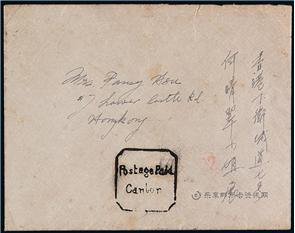 Mrs. Pansy
#7 Lower Castle Rd
Hongkong
香港下衛城道七号
何小姐
Postage Paid
Canton